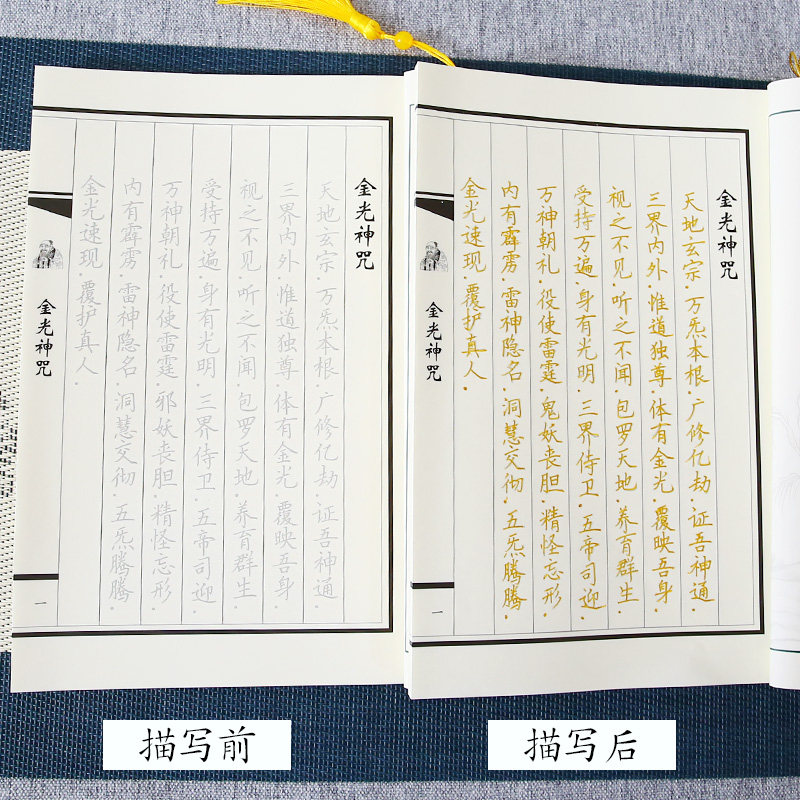 金光神咒
天地玄宗.万炁本根.广修亿劫.证吾神通.
三界内外.惟道独尊.体有金光.覆映吾身.
视之不见.听之不闻.包罗天地.养育群生.
受持万遍.身有光明.三界侍卫.五帝司迎.
万神朝礼.役使雷霆.邪妖丧胆.精怪忘形.
内有霹雳.雷神隐名.洞慧交彻.五炁腾腾.
金光速现.覆护真人.
金光神咒
一
描写前
金光神咒
天地玄宗.万炁本根.广修亿劫.证吾神通.
三界内外.惟道独尊.体有金光.覆映吾身.
视之不见.听之不闻.包罗天地.养育群生.
受持万遍.身有光明.三界侍卫.五帝司迎.
万神朝礼.役使雷霆.鬼妖丧胆.精怪忘形.
内有霹雳.雷神隐名.洞慧交彻.五炁腾腾.
金光速现.覆护真人.
金光神咒
一
描写后